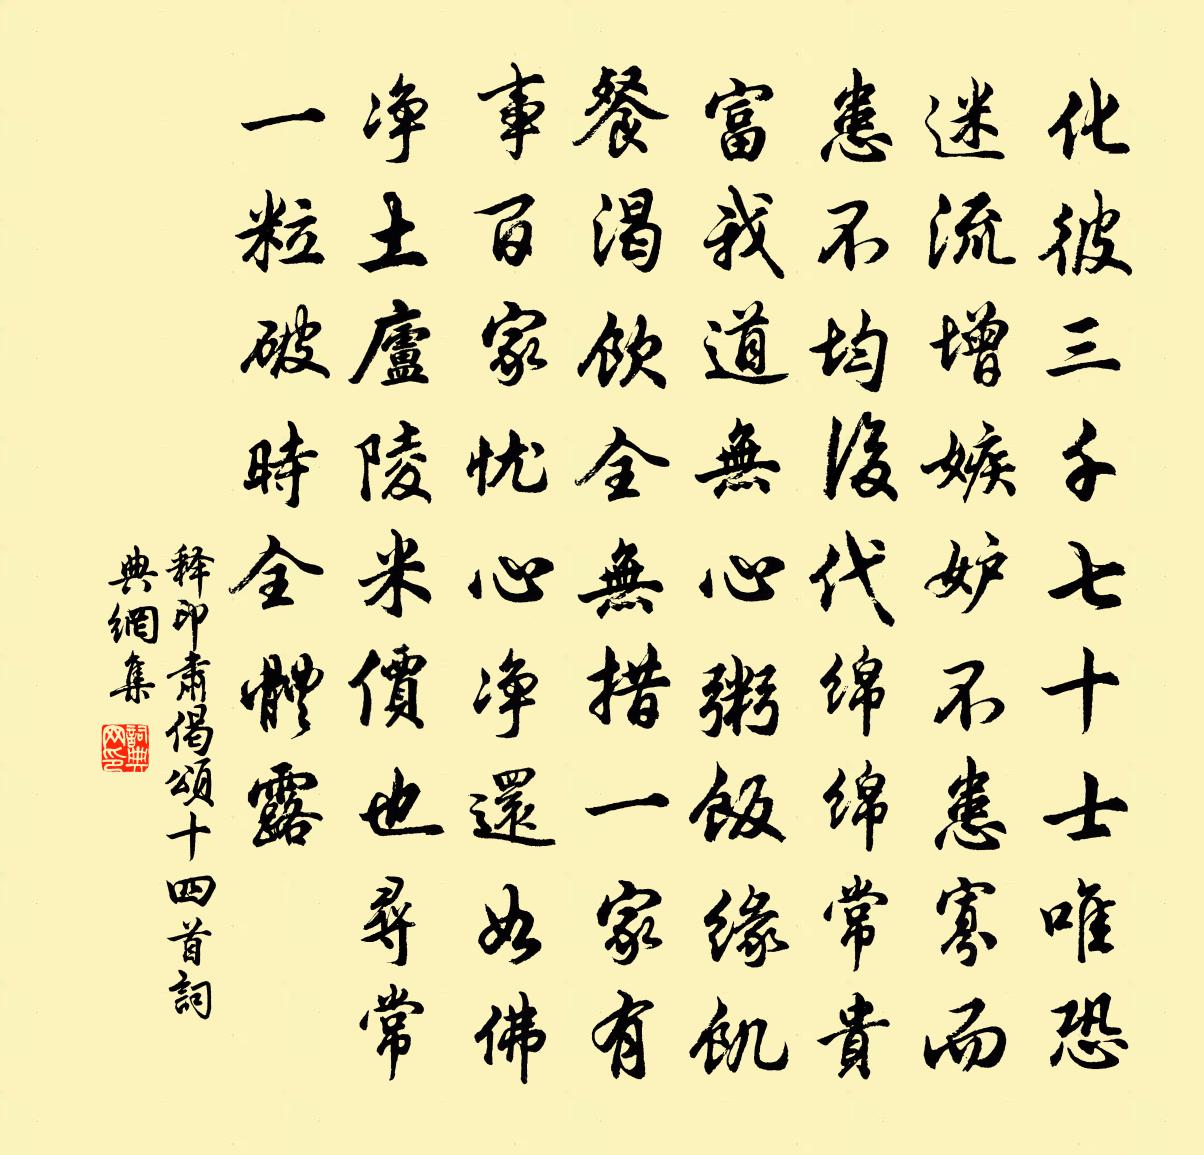 化彼三千七十士唯恐
迷流增嫉妒不患寡而
患不均後代綿綿常貴
富我道無心粥飯緣飢
餐渴飲全無措一家有
事百家忧心净還如佛
净土廬陵米價也尋常
一粒破時全體露
释印肃偈頌十四首詞
典網集
詞典网印